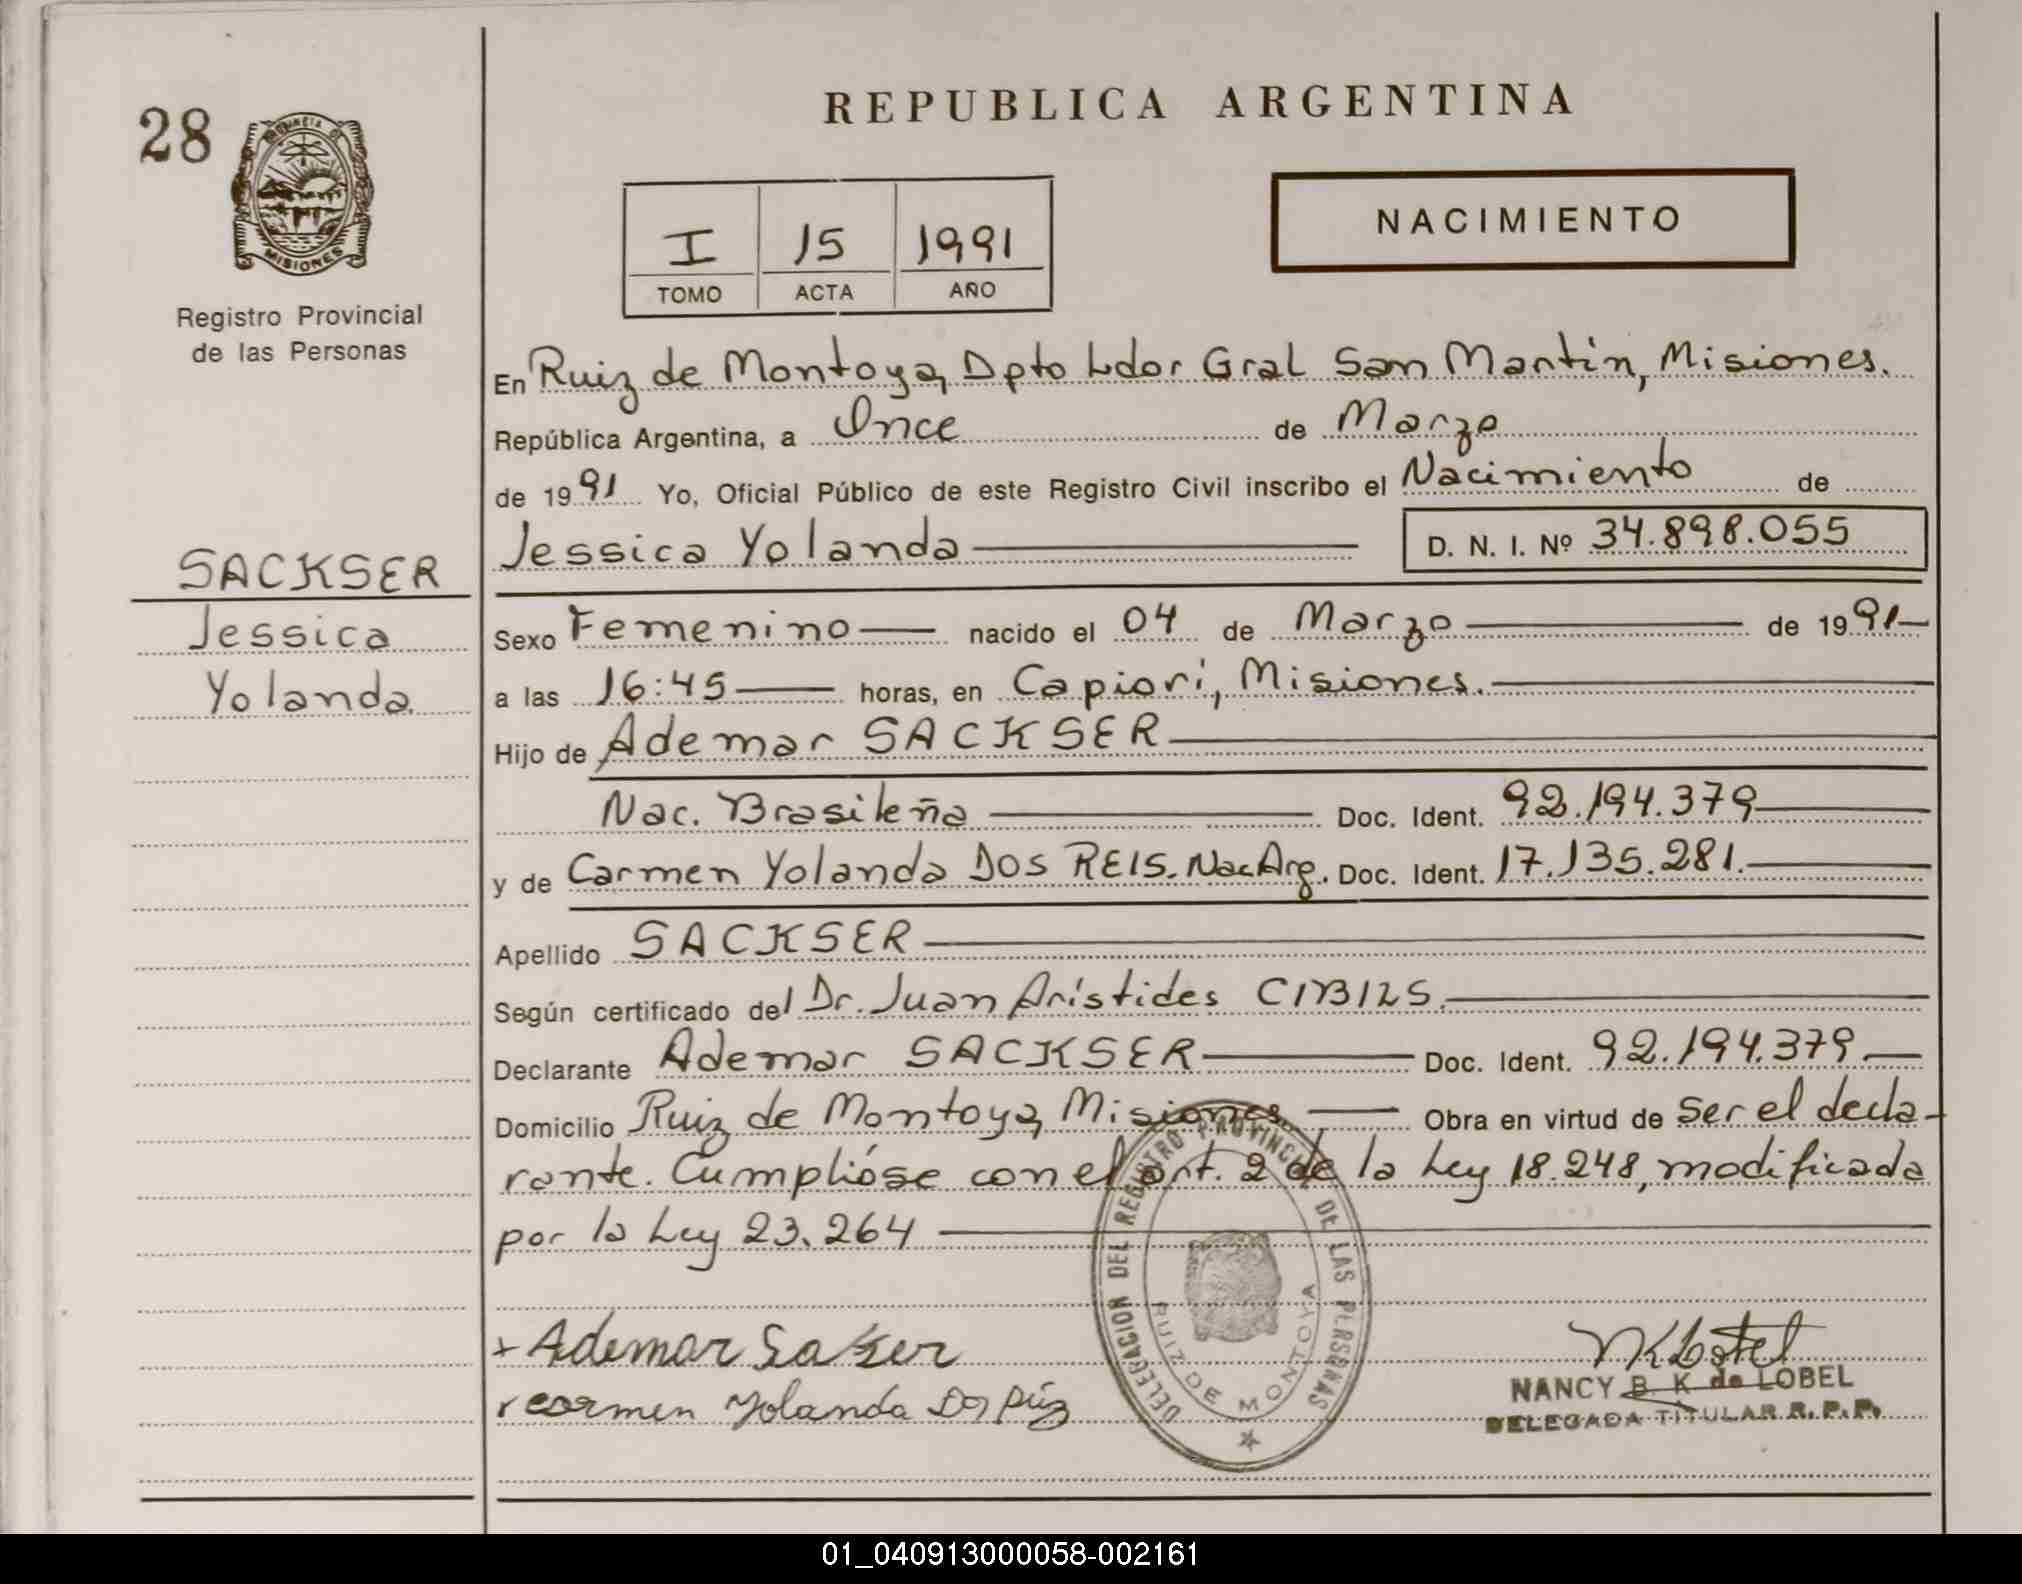 28
PROVINCIA DE
MISIONES
Registro Provincial
de las Personas
SACKSER
Jessica
Yolanda
REPUBLICA ARGENTINA
I 15 1991
TOMO ACTA AÑO
NACIMIENTO
En Ruiz de Montoya, Dpto Ldor Gral San Martín, Misiones.
República Argentina, a Once de Marzo
de 1991 Yo, Oficial Público de este Registro Civil inscribo el Nacimiento de
Jessica Yolanda D. N. I. Nº 34.898.055
Sexo Femenino nacido el 04 de Marzo de 1991
a las 16:45 horas, en Capiovi, Misiones.
Hijo de Ademar SACKSER
Nac. Brasileña Doc. Ident. 92.194.379
y de Carmen Yolanda DOS REIS. Nac Arg. Doc. Ident. 17.135.281.
Apellido SACKSER
Según certificado del Dr. Juan Arístides CIBILS.
Declarante Ademar SACKSER Doc. Ident. 92.194.379
Domicilio Ruiz de Montoya, Misiones Obra en virtud de ser el decla-
rante. Cumplióse con el art. 2 de la Ley 18.248, modificada
por la Ley 23.264
DELEGACION DEL REGISTRO PROVINCIAL DE LAS PERSONAS
RUIZ DE MONTOYA
+ Ademar Sakser
Carmen Yolanda Dos
NANCY B. K. de LOBEL
DELEGADA TITULAR R. P. P.
01_040913000058-002161